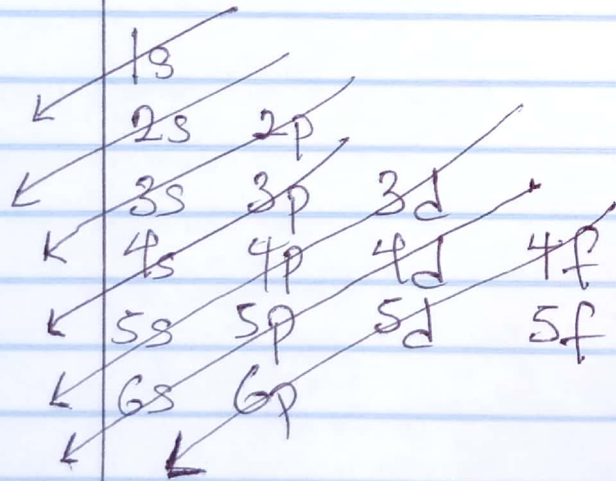 1s
2s 2p
3s 3p 3d
4s 4p 4d 4f
5s 5p 5d 5f
6s 6p